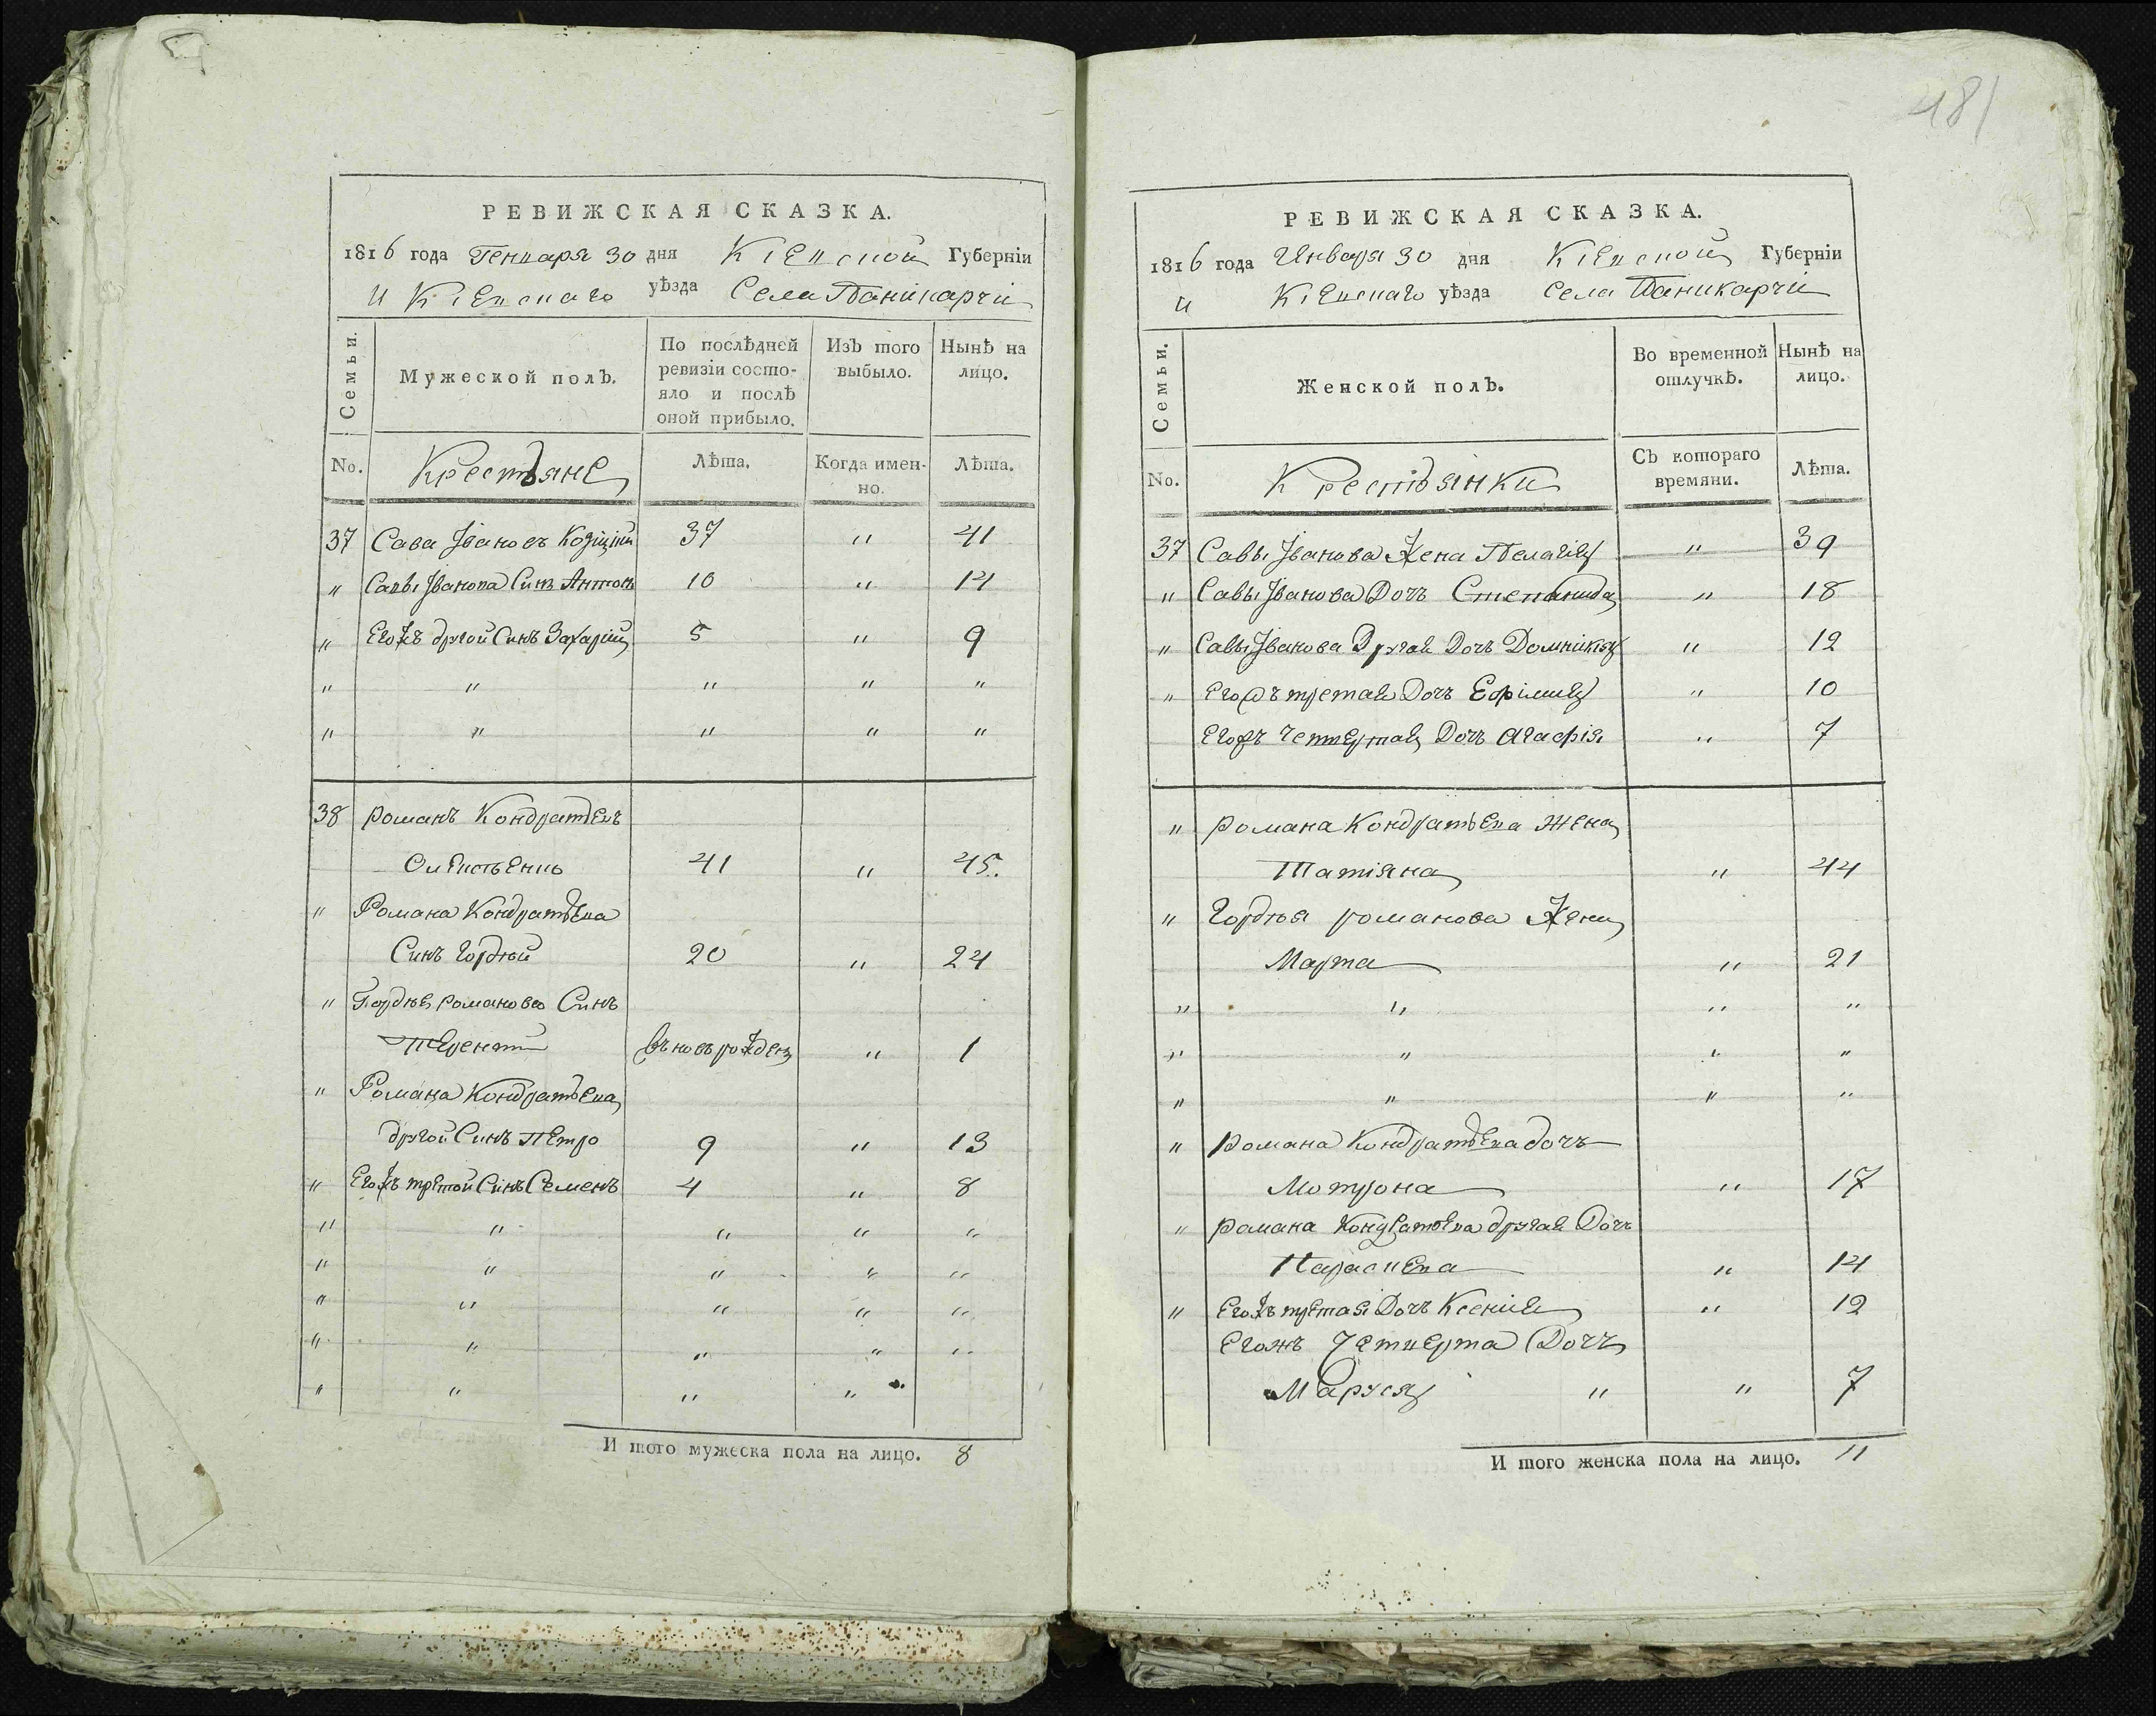 481
РЕВИЖСКАЯ СКАЗКА.
1816 года Генваря 30 дня Кіевской Губерніи
и Кіевскаго уѣзда Села Паникарчи
Семьи.
Мужеской полъ.
По послѣдней ревизіи состо-
яло и послѣ
оной прибыло.
Изъ того
выбыло.
Нынѣ на
лицо.
No.
Крестьяне
Лѣта.
Когда имен-
но.
Лѣта.
37 Сава Іванов 37 " 41
" Савы Іванова Синъ Антонъ 10 " 14
" Егожъ другой Синъ Захарій 5 " 9
" " " " "
" " " " "
38 Романъ Кондратьевъ
41 " 45.
" Романа Кондратьева
Синъ Гордѣй 20 " 24
" Гордѣя Романова Синъ
Терентій вновърожден " 1
" Романа Кондратьева
другой Синъ Петро 9 " 13
" Егожъ третой Синъ Семенъ 4 " 8
" " " " "
" " " " "
" " " " "
" " " " "
" " " "
И того мужеска пола на лицо. 8
РЕВИЖСКАЯ СКАЗКА.
1816 года Января 30 дня Кіевской Губерніи
и Кіевскаго уѣзда Села Паникарчи
Семьи.
Женской полъ.
Во временной
отлучкѣ.
Нынѣ на
лицо.
No.
Крестьянки
Съ котораго
времяни.
Лѣта.
37 Савы Іванова Жена Пелагія " 39
" Савы Іванова Дочь Степанида " 18
" Савы Іванова Другая Дочъ Домникія " 12
" Егожъ третая Дочъ Ефімия " 10
Егожъ Четвертая Дочъ Агафія " 7
" Романа Кондратьева Жена
Татіяна " 44
" Гордѣя Романова Жена
Марта " 21
" " " "
" " " "
" " " "
" Романа Кондратьева дочъ
Мотрона " 17
" Романа Кондратьева другая Дочъ
Параскева " 14
" Егожъ третая Дочъ Ксенія " 12
Егожъ Четверта Дочъ
Маруся " " 7
И того женска пола на лицо. 11